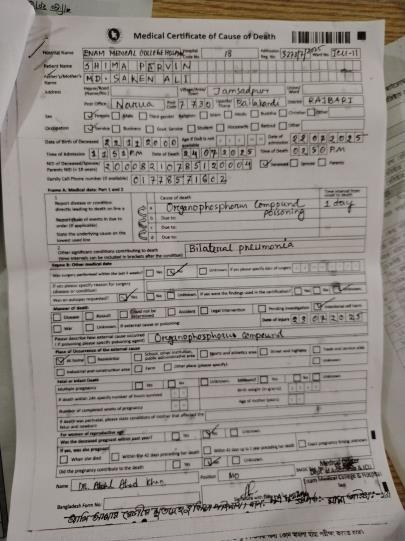 Medical Certificate of Cause of Death
Hospital Name ENAM MEDICAL COLLEGE HOSPITAL Hospital Code 18 Admission Reg. No. Ward No. ICU-11
Patient Name SHIMA PERVIN
Father's/Mother's Name MD. SAKEN ALI
Address House/Road (Name/No.) Village/Area/Town Jamsadpur Union/Ward
Post Office Narua Post Code 7730 Upazila/Thana Baliakandi District RAJBARI
Sex Female Male Third gender Religion Islam Hindu Buddha Christian Other
Occupation Service Business Govt. Service Student Housewife Retired Other
Date of Birth of Deceased 22112000 Age if DoB is not available Date of admission 22072025
Time of Admission 1153PM Date of Death 24072025 Time of Death 0250PM
NID of Deceased/Spouse/Parents NID (< 18 years) Deceased Spouse Parents
Family Cell Phone Number (if available) 01778571602
Frame A: Medical data: Part 1 and 2
Cause of death Time interval from onset to death
1 Report disease or condition directly leading to death on line a a Organophosphorus compound poisoning 1 day
Report chain of events in due to order (if applicable) b Due to:
c Due to:
State the underlying cause on the lowest used line d Due to:
2 Other significant conditions contributing to death (time intervals can be included in brackets after the condition) Bilateral pneumonia
Frame B: Other medical data
Was surgery performed within the last 4 weeks? Yes No Unknown If yes please specify date of surgery
If yes please specify reason for surgery (disease or condition)
Was an autopsy requested? Yes No Unknown If yes were the findings used in the certification? Yes No Unknown
Manner of death
Disease Assault Could not be determined Accident Legal intervention Pending investigation Intentional self harm
War Unknown If external cause or poisoning: Date of injury 22072025
Please describe how external cause occurred (If poisoning please specify poisoning agent) Organophosphorus compound
Place of Occurrence of the external cause
At home Residential School, other institution, public administrative area Sports and athletics area Street and highway Trade and service area
Industrial and construction area Farm Other place (please specify) Unknown
Fetal or infant Death
Multiple pregnancy Yes No Unknown Stillborn? Yes No Unknown
If death within 24h specify number of hours survived Birth weight (in grams)
Number of completed weeks of pregnancy Age of mother (years)
If death was perinatal, please state conditions of mother that affected the fetus and newborn
For women of reproductive age
Was the deceased pregnant within past year? Yes No Unknown
If yes, was she pregnant?
When she died Within 42 days preceding her death Within 43 days up to 1 year preceding death Exact pregnancy timing unknown
Did the pregnancy contribute to the death Yes No Unknown
Name Position MO
Medical College & Hospital